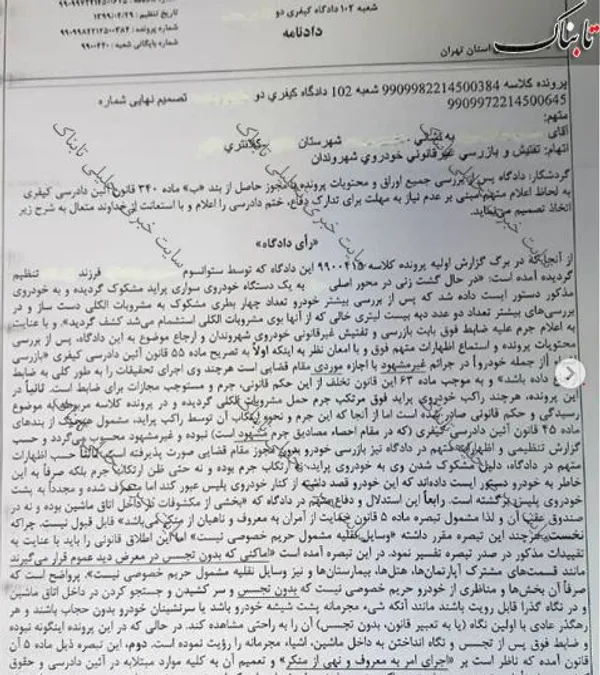 تابناک
استان تهران
شعبه ۱۰۲ دادگاه کیفری دو
دادنامه
تاریخ تنظیم : ۱۳۹۹/۰۴/۲۹
شماره پرونده : ۹۹۰۹۹۸۲۲۱۴۵۰۰۳۸۴
شماره بایگانی شعبه : ۹۹۰۰۴۲۰
پرونده کلاسه 9909982214500384 شعبه 102 دادگاه کیفری دو تصمیم نهایی شماره
9909972214500645
متهم:
آقای به نشانی شهرستان کلانتری
اتهام: تفتیش و بازرسی غیرقانونی خودروی شهروندان
گردشکار: دادگاه پس از بررسی جمیع اوراق و محتویات پرونده با مجوز حاصل از بند «ب» ماده ۳۴۰ قانون آیین دادرسی کیفری
به لحاظ اعلام متهم مبنی بر عدم نیاز به مهلت برای تدارک دفاع، ختم دادرسی را اعلام و با استعانت از خداوند متعال به شرح زیر
اتخاذ تصمیم می‌نماید.
«رأی دادگاه»
از آنجا که در برگ گزارش اولیه پرونده کلاسه ۹۹۰۰۴۱۵ این دادگاه که توسط ستوانسوم فرزند تنظیم
گردیده آمده است: «در حال گشت زنی در محور اصلی به یک دستگاه خودروی سواری پراید مشکوک گردیده و به خودروی
مذکور دستور ایست داده شد که پس از بررسی بیشتر خودرو تعداد چهار بطری مشکوک به مشروبات الکلی دست ساز و در
بررسی‌های بیشتر تعداد دو عدد دبه بیست لیتری خالی که از آنها بوی مشروبات الکلی استشمام می‌شد کشف گردید». و با عنایت
به اعلام جرم علیه ضابط فوق بابت بازرسی و تفتیش غیرقانونی خودروی شهروندان و ارجاع موضوع به این دادگاه، پس از بررسی
محتویات پرونده و استماع اظهارات متهم فوق و با امعان نظر به اینکه اولاً به تصریح ماده ۵۵ قانون آئین دادرسی کیفری «بازرسی
از جمله خودرو) در جرائم غیرمشهود با اجازه موردی مقام قضایی است هرچند وی اجرای تحقیقات را به طور کلی به ضابط
داده باشد» و به موجب ماده ۶۳ این قانون تخلف از این حکم قانونی، جرم و مستوجب مجازات برای ضابط است. ثانیاً در
این پرونده، هرچند راکب خودروی پراید فوق مرتکب جرم حمل مشروبات الکلی گردیده و در پرونده کلاسه مربوطه به موضوع
رسیدگی و حکم قانونی صادر شده است اما از آنجا که این جرم و نحوه ارتکاب آن توسط راکب پراید، مشمول هیچیک از بندهای
ماده ۴۵ قانون آئین دادرسی کیفری (که در مقام احصاء مصادیق جرم مشهود است) نبوده و غیرمشهود محسوب می‌گردد و حسب
گزارش تنظیمی و اظهارات متهم در دادگاه نیز بازرسی خودرو بدون مجوز مقام قضایی صورت پذیرفته است. ثالثاً حسب اظهارات
متهم در دادگاه، دلیل مشکوک شدن وی به خودروی پراید، نه ارتکاب جرم بوده و نه حتی ظن ارتکاب جرم بلکه صرفاً به این
خاطر به خودرو دستور ایست داده‌اند که این خودرو قصد داشته از کنار خودروی پلیس عبور کند اما منحرف شده و مجدداً به پشت
خودروی پلیس برگشته است. رابعاً این استدلال و دفاع متهم در دادگاه که «بخشی از مکشوفات در داخل اتاق ماشین بوده و نه در
صندوق عقب آن و لذا مشمول تبصره ماده ۵ قانون حمایت از آمران به معروف و ناهیان از منکر می‌باشد» قابل قبول نیست. چراکه
نخست هرچند این تبصره مقرر داشته «وسایل نقلیه مشمول حریم خصوصی نیست» اما این اطلاق قانونی را باید با عنایت به
تقییدات مذکور در صدر تبصره تفسیر نمود. در این تبصره آمده است «اماکنی که بدون تجسس در معرض دید عموم قرار می‌گیرند
مانند قسمت‌های مشترک آپارتمان‌ها، هتل‌ها، بیمارستان‌ها و نیز وسایل نقلیه مشمول حریم خصوصی نیست». پرواضح است که
صرفاً آن بخش‌ها و مناظری از خودرو حریم خصوصی نیست که بدون تجسس و سر کشیدن و جستجو کردن در داخل اتاق ماشین
و در نگاه گذرا قابل رویت باشند مانند آنکه شیء مجرمانه پشت شیشه خودرو باشد یا سرنشینان خودرو بدون حجاب باشند و هر
رهگذر عادی با اولین نگاه (یا به تعبیر قانون، بدون تجسس) آن را به راحتی مشاهده کند. در حالی که در این پرونده اینگونه نبوده
و ضابط فوق پس از تجسس و نگاه انداختن به داخل ماشین، اشیاء مجرمانه را رؤیت نموده است. دوم، این تبصره ذیل ماده ۵ آن
قانون آمده که ناظر است بر «اجرای امر به معروف و نهی از منکر» و تعمیم آن به کلیه موارد مبتلابه در آئین دادرسی و حقوق